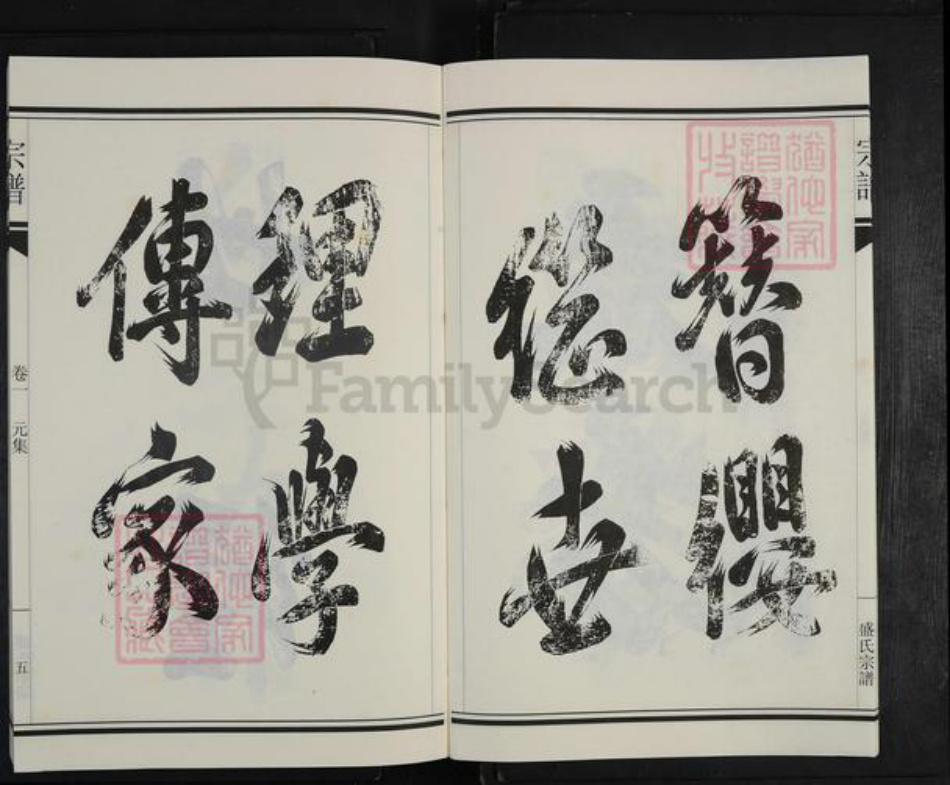 簪纓
繼世
理學
傳家
宗譜
卷一 元集
五
宗譜
盛氏宗譜
FamilySearch